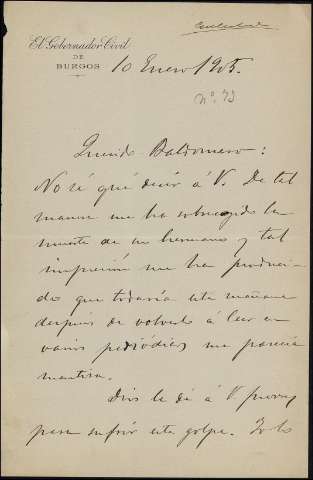 Contestada
El Gobernador Civil
DE
BURGOS
10 Enero 1905.
nº. 73
Querido Baldomero:
No sé qué decir á V. De tal
manera me ha sobrecogido la
muerte de su hermano y tal
impresión me ha produci-
do que todavía esta mañana
después de volverlo á leer en
varios periódicos me parecía
mentira.
Dios le dé á V. fuerzas
para sufrir este golpe. Todo